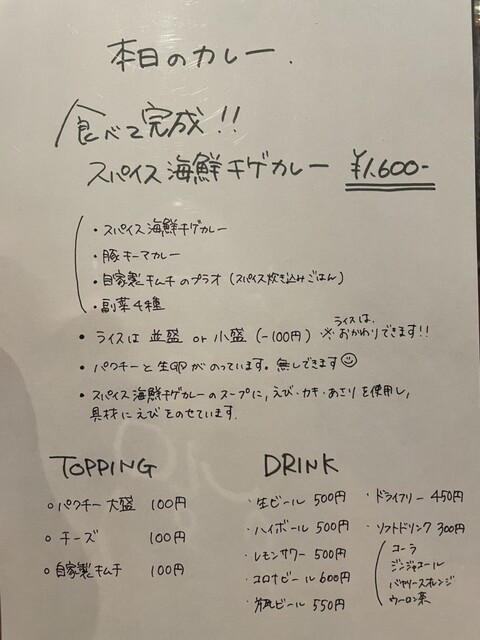 本日のカレー.
食べて完成!!
スパイス海鮮チゲカレー ¥1,600-
・スパイス海鮮チゲカレー
・豚キーマカレー
・自家製キムチのプラオ (スパイス炊き込みごはん)
・副菜4種
・ライスは 並盛 or 小盛 (-100円) ※ライスは、おかわりできます!!
・パクチーと生卵がのっています。無しできます☺
・スパイス海鮮チゲカレーのスープに、えび・カキ・あさりを使用し、
具材にえびをのせています。
TOPPING
○パクチー大盛 100円
○チーズ 100円
○自家製キムチ 100円
DRINK
・生ビール 500円
・ハイボール 500円
・レモンサワー 500円
・コロナビール 600円
・瓶ビール 550円
・ドライフリー 450円
・ソフトドリンク 300円
コーラ
ジンジャエール
バヤリースオレンジ
ウーロン茶